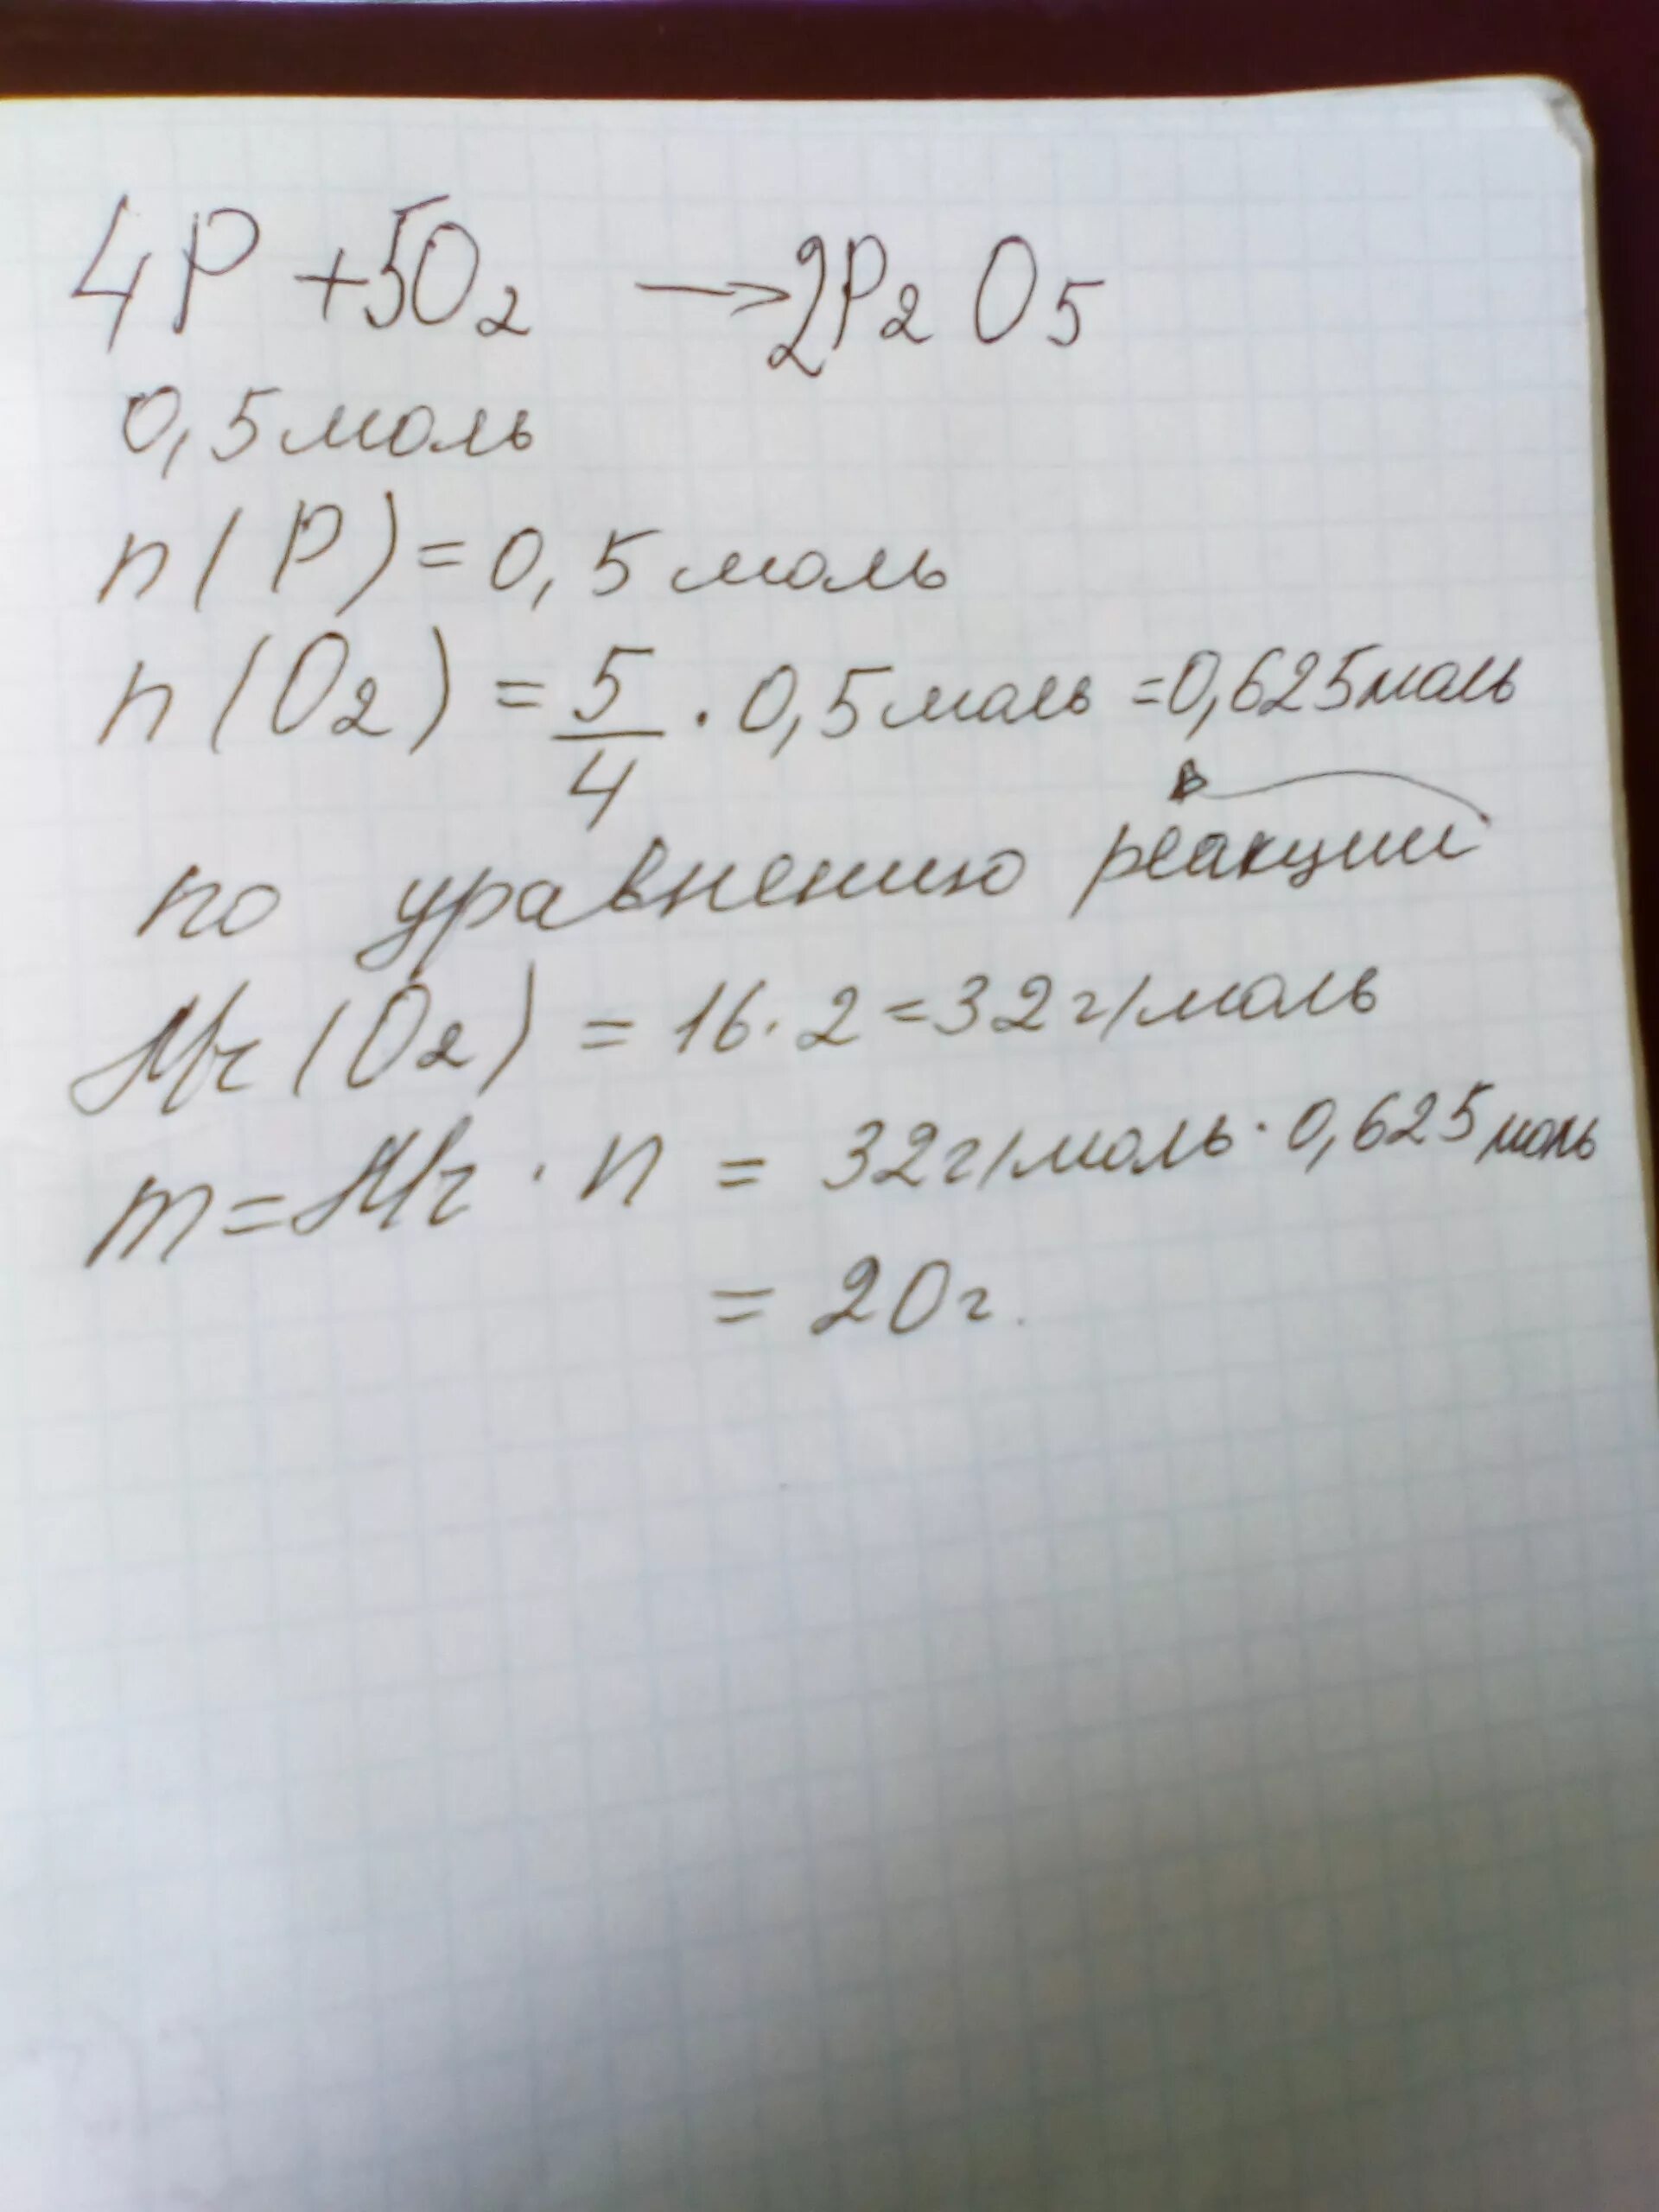 4P + 5O₂ → 2P₂O₅
0,5 моль
n(P) = 0,5 моль
n(O₂) = 5/4 · 0,5 моль = 0,625 моль
в
по уравнению реакции
Mr(O₂) = 16 · 2 = 32 г/моль
m = Mr · n = 32 г/моль · 0,625 моль
= 20 г.